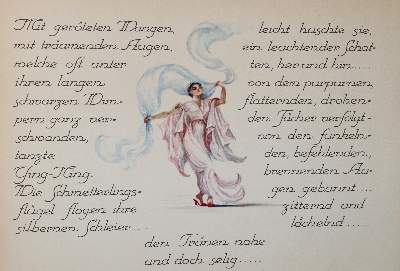 Mit geröteten Wangen,
mit träumenden Augen,
welche oft unter
ihren langen
schwarzen Wim-
pern ganz ver-
schwanden,
tanzte
Ying-Ning.
Wie Schmetterlings-
flügel flogen ihre
silbernen Schleier....
leicht huschte sie,
ein leuchtender Schat-
ten, her und hin.....
von dem purpurnen,
flatternden, drohen-
den Fächer verfolgt-
von den funkeln-
den, befehlenden,
brennenden Au-
gen gebannt....
zitternd und
lächelnd....
den Tränen nahe
und doch selig.....